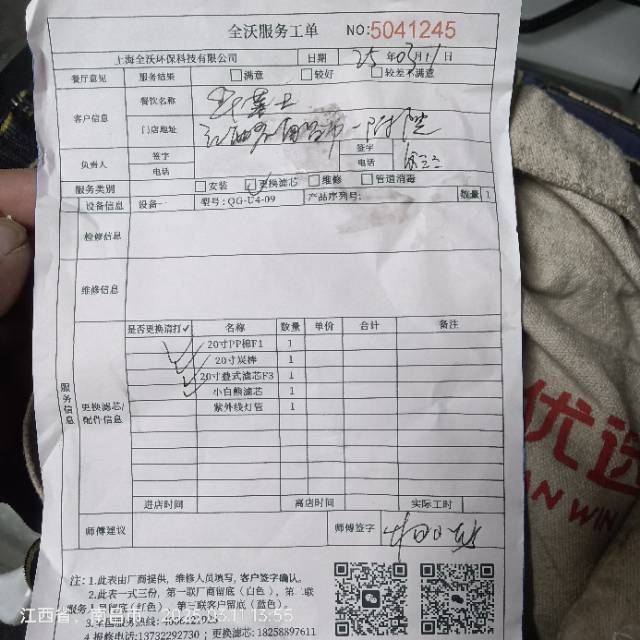 全沃服务工单 NO:5041245
上海全沃环保科技有限公司 日期 25年03月11日
餐厅意见 服务结果 满意 较好 较差不满意
客户信息 餐饮名称 华莱士
门店地址
负责人 签字 电话 签字 电话
服务类别 安装 更换滤芯 维修 管道消毒
服务信息
设备信息 设备一 型号:QG-U4-09 产品序列号: 数量 1
检修信息
维修信息
更换滤芯/配件信息
是否更换请打✓ 名称 数量 单价 合计 备注
✓ 20寸PP棉F1 1
✓ 20寸炭棒 1
✓ 20寸叠式滤芯F3 1
✓ 小白熊滤芯 1
紫外线灯管 1
进店时间 离店时间 实际工时
师傅建议 师傅签字
注:1.此表由厂商提供,维修人员填写,客户签字确认。
2.此表一式三份,第一联厂商留底(白色),第二联
服务人员留底(红色),第三联客户留底(蓝色)。
4.报修电话:13732292730;更换滤芯:18258897611
优选
AN WIN